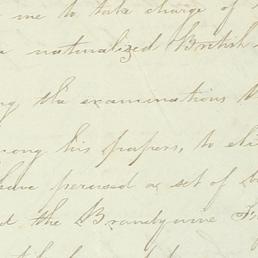 me to take charge of
naturalized British
the examinations
among his papers, to
have perused a set of
the Brandywine